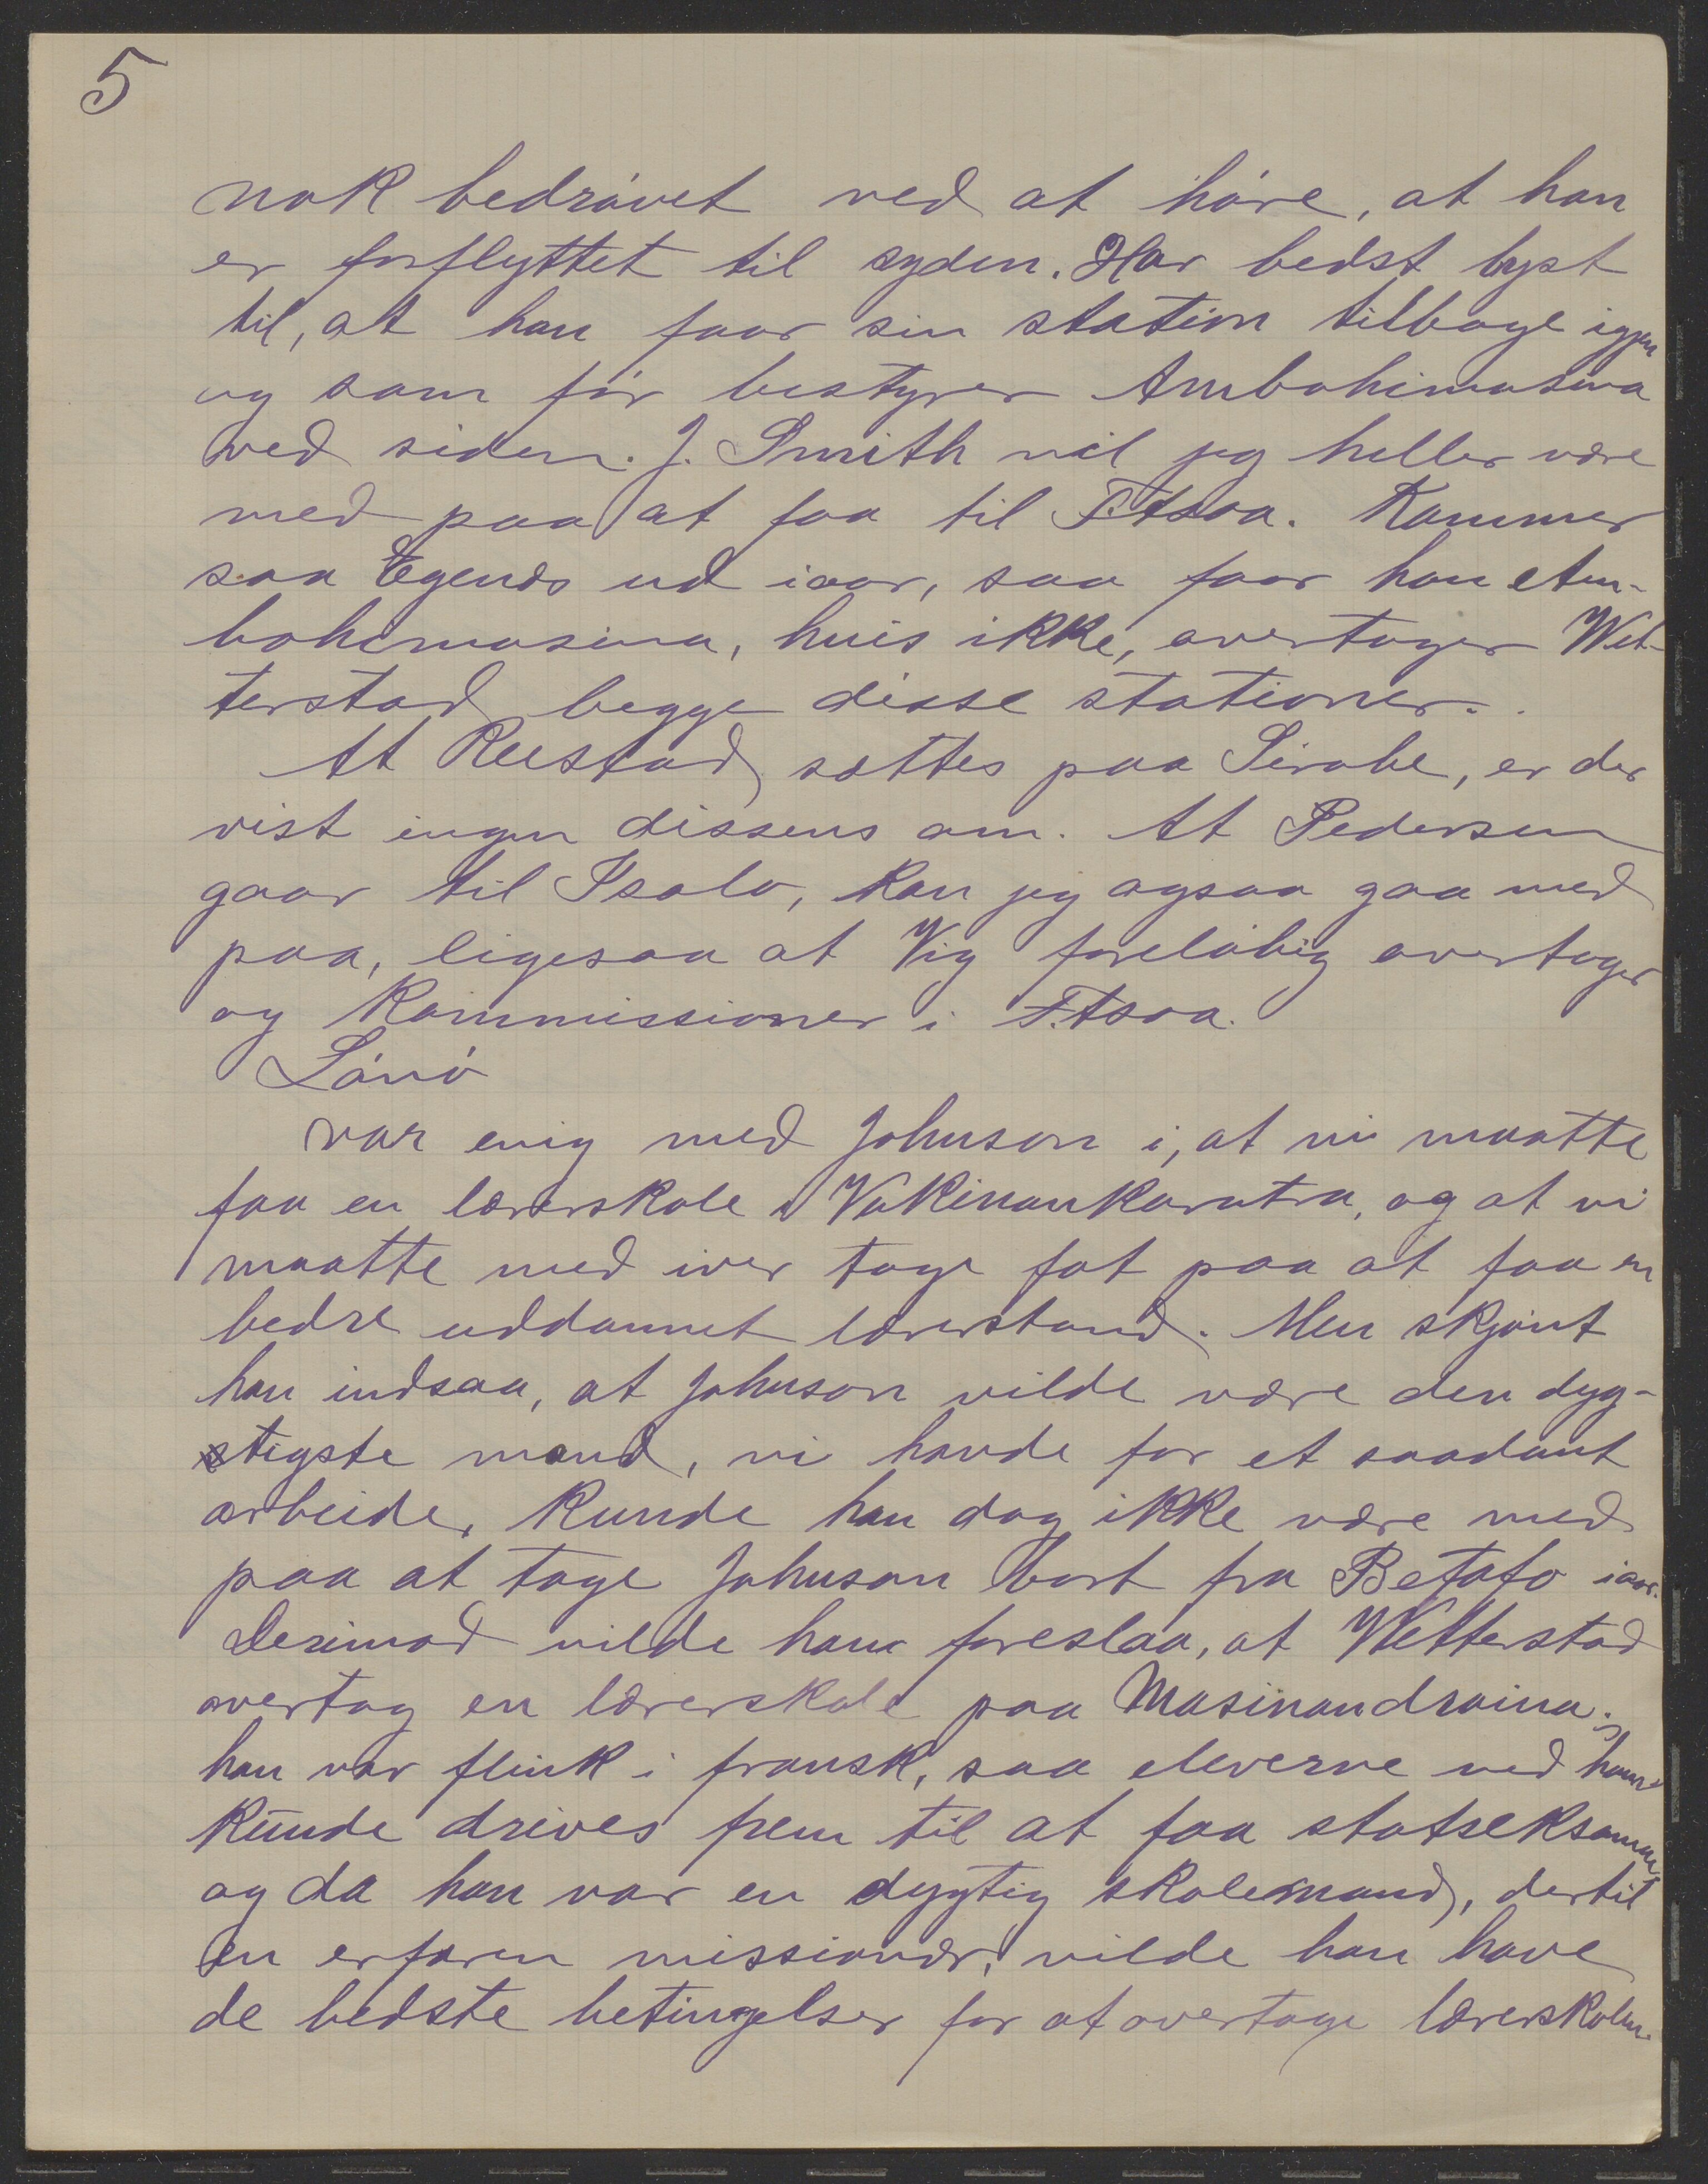 5
nok bedrøvet ved at høre, at han
er forflyttet til syden. Har bedst lyst
til, at han faar sin station tilbage igjen
og som før bestyrer Ambohimasina
ved siden. J. Smith vil jeg heller være
med paa at faa til F.tsoa. Kommer
saa Egenæs ud iaar, saa faar han Am-
bohimasina, hvis ikke, overtager Wet-
terstad begge disse stationer.
At Reestad sættes paa Sirabe, er der
vist ingen dissens om. At Pedersen
gaar til Isalo, kan jeg ogsaa gaa med
paa, ligesaa at Vig foreløbig overtager
og Kommissioner i F.tsoa.
Lønø
var enig med Johnson i, at vi maatte
faa en lærerskole i Vakinankaratra, og at vi
maatte med iver tage fat paa at faa en
bedre uddannet lærerstand. Men skjønt
han indsaa, at Johnson vilde være den dyg-
tigste mand, vi havde for et saadant
arbeide, kunde han dog ikke være med
paa at tage Johnson bort fra Betafo iaar.
Derimod vilde han foreslaa, at Wetterstad
overtog en lærerskole paa Masinandraina;
han var flink i fransk, saa eleverne ved ham
kunde drives frem til at faa statseksamen,
og da han var en dygtig skolemand, dertil
en erfaren missionær, vilde han have
de bedste betingelser for at overtage lærerskolen.